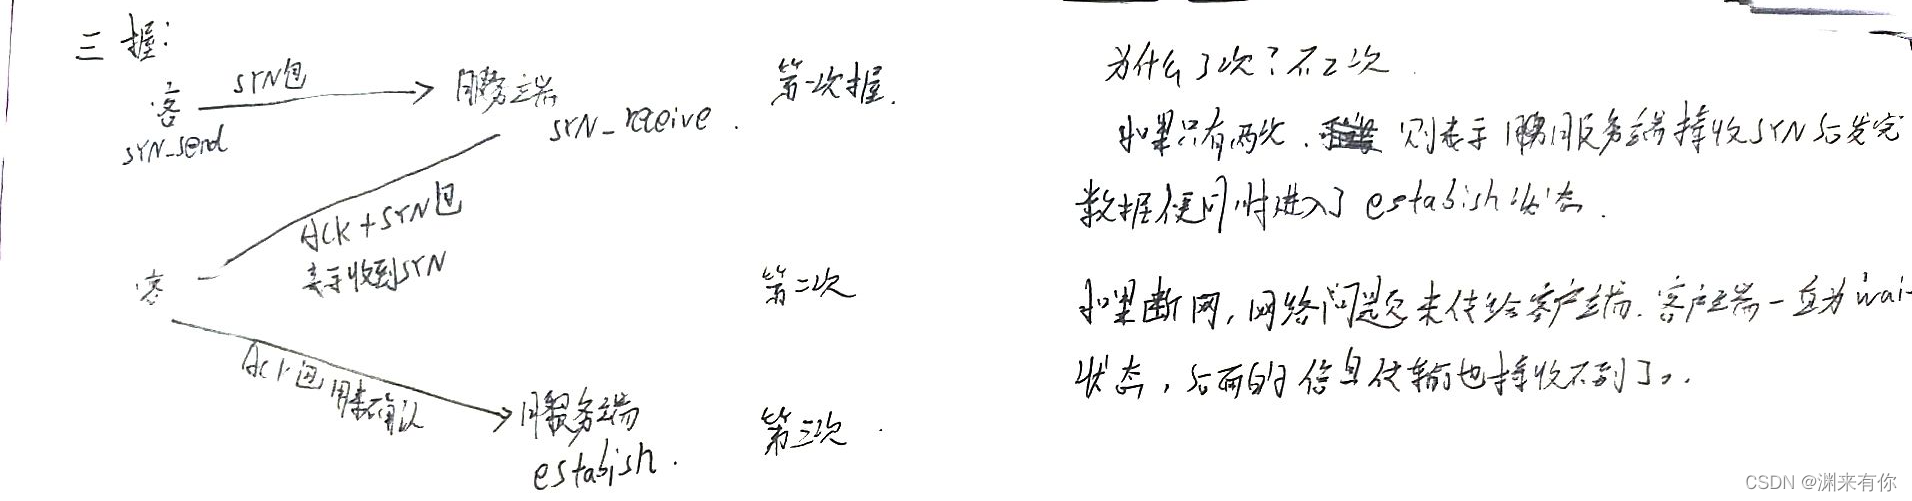 三握:
SYN包
客 服务端 第一次握.
SYN_send SYN_receive.
ACK+SYN包
表示收到SYN
客 第二次
ACK包 用来确认
服务端 第三次.
estabish.
为什么3次?不2次.
如果只有两次. 则表示服务端接收SYN后发完
数据便同时进入了estabish状态.
如果断网,网络问题未传给客户端.客户端一直为wai
状态,后面的信息传输也接收不到了。.
CSDN @渊来有你